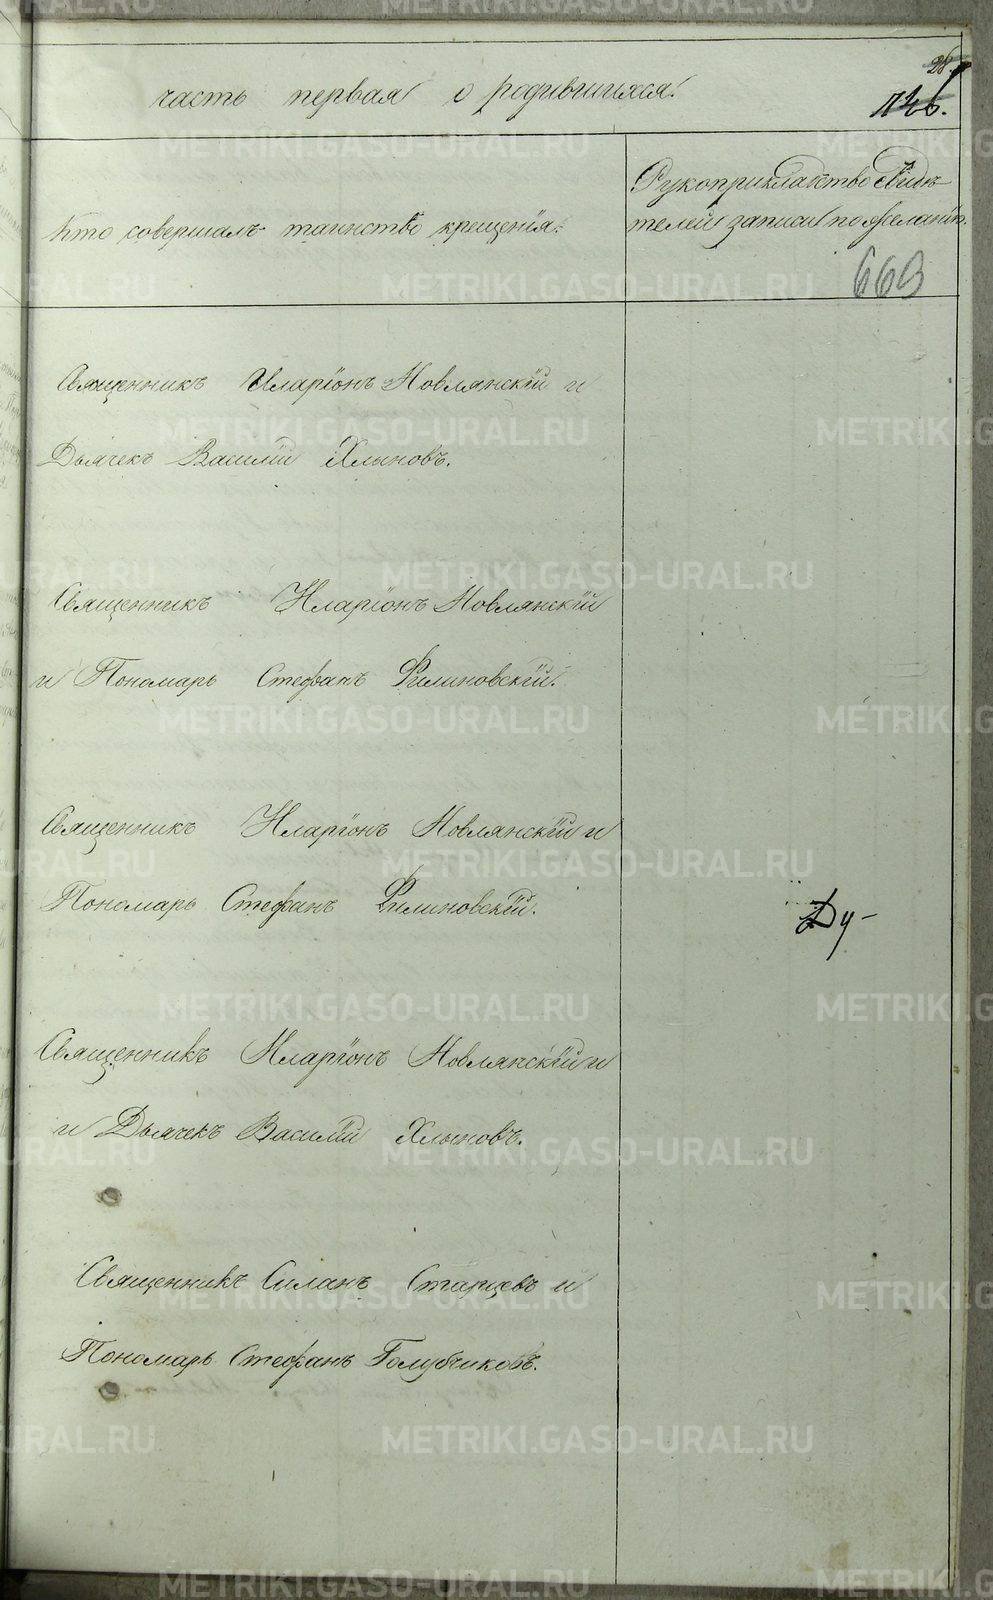 часть первая о родившихся.
28.
126.
Кто совершалъ таинство крещенія.
Рукоприкладство свидѣ-
телей записи по желанію.
669
Священникъ Иларіонъ Новлянскій и
Дьячекъ Василій Хлыновъ.
Священникъ Иларіонъ Новлянскій
и Пономарь Стефанъ Филиновскій.
Священникъ Иларіонъ Новлянскій и
Пономарь Стефанъ Филиновскій.
Священникъ Иларіонъ Новлянскій и
и Дьячекъ Василій Хлыновъ.
Священникъ Силанъ Старцевъ и
Пономарь Стефанъ Голубчиковъ.
METRIKI.GASO-URAL.RU